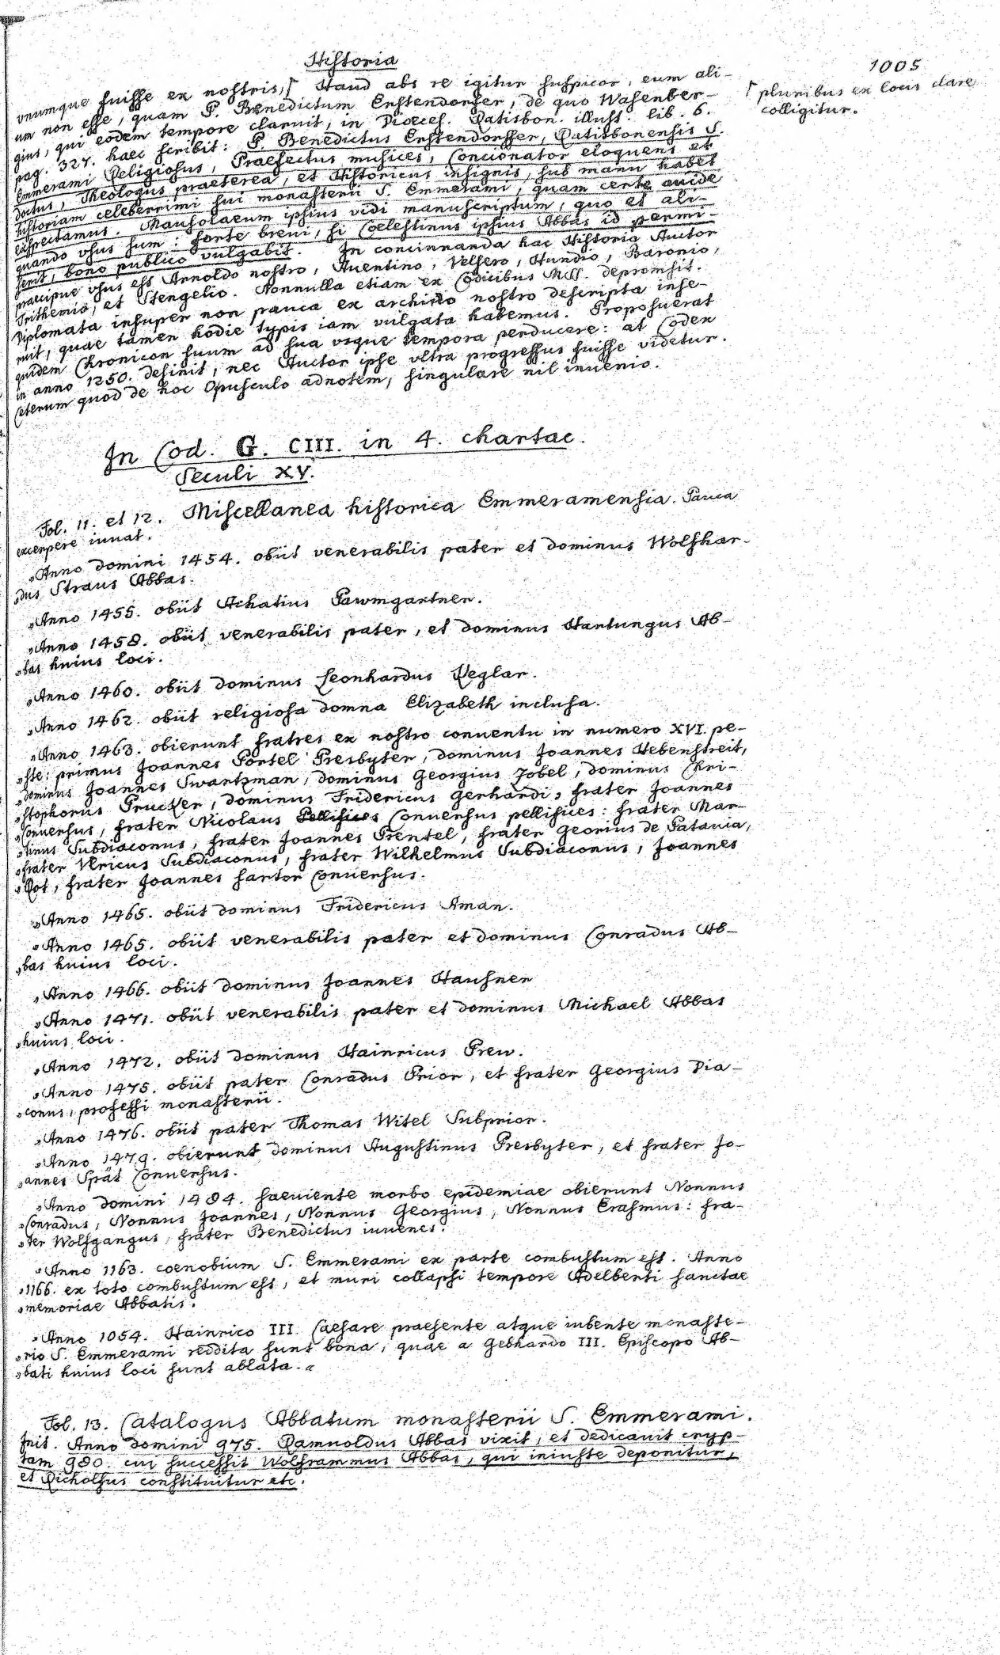 Historia
1005
vnumque fuisse ex nostris,⌈ Haud abs re igitur suspicor, eum ali-
⌈ pluribus ex locis clare
colligitur.
um non esse, quam P. Benedictum Erstendorffer, de quo Wasenber-
gius, qui eodem tempore claruit, in Dioeces. Ratisbon. illust. lib. 6.
pag. 327. haec scribit: P. Benedictus Erstendorffer, Ratisbonensis S.
Emmerami Religiosus, Praefectus musices, Concionator eloquens et
doctus, Theologus praeterea, et Historicus insignis, sub manu habet
historiam celeberrimi sui monasterii S. Emmerami, quam certe auide
exspectamus. Mausolaeum ipsius vidi manuscriptum, quo et ali-
quando vsus sum: forte breui, si Coelestinus ipsius Abbas id permi-
serit, bono publico vulgabit. In concinnanda hac Historia Auctor
praecipue vsus est Arnoldo nostro, Auentino, Velsero, Hundio, Baronio,
Trithemio, et Stengelio. Nonnulla etiam ex Codicibus MSS. depromsit.
Diplomata insuper non pauca ex archiuo nostro descripta inse-
ruit, quae tamen hodie typis iam vulgata habemus. Proposuerat
quidem Chronicon suum ad sua vsque tempora perducere: at Codex
in anno 1250. desinit, nec Auctor ipse vltra progressus fuisse videtur.
Ceterum quod de hoc Opusculo adnotem, singulare nil inuenio.
In Cod. G. CIII. in 4. chartac.
Seculi XV.
Fol. 11. et 12. Miscellanea historica Emmeramensia. Pauca
excerpere iuuat.
„Anno domini 1454. obiit venerabilis pater et dominus Wolfhar-
„dus Straus Abbas.
„Anno 1455. obiit Achatius Pawmgartner.
„Anno 1458. obiit venerabilis pater, et dominus Hartungus Ab-
„bas huius loci.
„Anno 1460. obiit dominus Leonhardus Reglar.
„Anno 1462. obiit religiosa domna Elizabeth inclusa.
„Anno 1463. obierunt fratres ex nostro conuentu in numero XVI. pe-
„ste: primus Joannes Portel Presbyter, dominus Joannes Hebenstreit,
„dominus Joannes Swartzman, dominus Georgius Zobel, dominus Chri-
„stophorus Prucker, dominus Fridericus Gerhardi, frater Joannes
„Conuersus, frater Nicolaus Conuersus pellifices: frater Mar-
„tinus Subdiaconus, frater Joannes Prentel, frater Georius de Patauia,
„frater Vlricus Subdiaconus, frater Wilhelmus Subdiaconus, Joannes
„Rot, frater Joannes sartor Conuersus.
„Anno 1465. obiit dominus Fridericus Aman.
„Anno 1465. obiit venerabilis pater et dominus Conradus Ab-
„bas huius loci.
„Anno 1466. obiit dominus Joannes Hausner
„Anno 1471. obiit venerabilis pater et dominus Michael Abbas
„huius loci.
„Anno 1472. obiit dominus Hainricus Prew.
„Anno 1475. obiit pater Conradus Prior, et frater Georgius Dia-
„conus, professi monasterii.
„Anno 1476. obiit pater Thomas Witel Subprior.
„Anno 1479. obierunt dominus Augustinus Presbyter, et frater Jo-
„annes Spät Conuersus.
„Anno domini 1484. saeuiente morbo epidemiae obierunt Nonnus
„Conradus, Nonnus Joannes, Nonnus Georgius, Nonnus Erasmus: fra-
„ter Wolfgangus, frater Benedictus iuuenes.
„Anno 1163. coenobium S. Emmerami ex parte combustum est. Anno
„1166. ex toto combustum est, et muri collapsi tempore Adelberti sanctae
„memoriae Abbatis.
„Anno 1054. Hainrico III. Caesare praesente atque iubente monaste-
„rio S. Emmerami reddita sunt bona, quae a Gebhardo III. Episcopo Ab-
„bati huius loci sunt ablata.“
Fol. 13. Catalogus Abbatum monasterii S. Emmerami.
Init. Anno domini 975. Ramuoldus Abbas vixit, et dedicauit cryp-
tam 980. cui successit Wolframmus Abbas, qui iniuste deponitur,
et Richolfus constituitur etc.